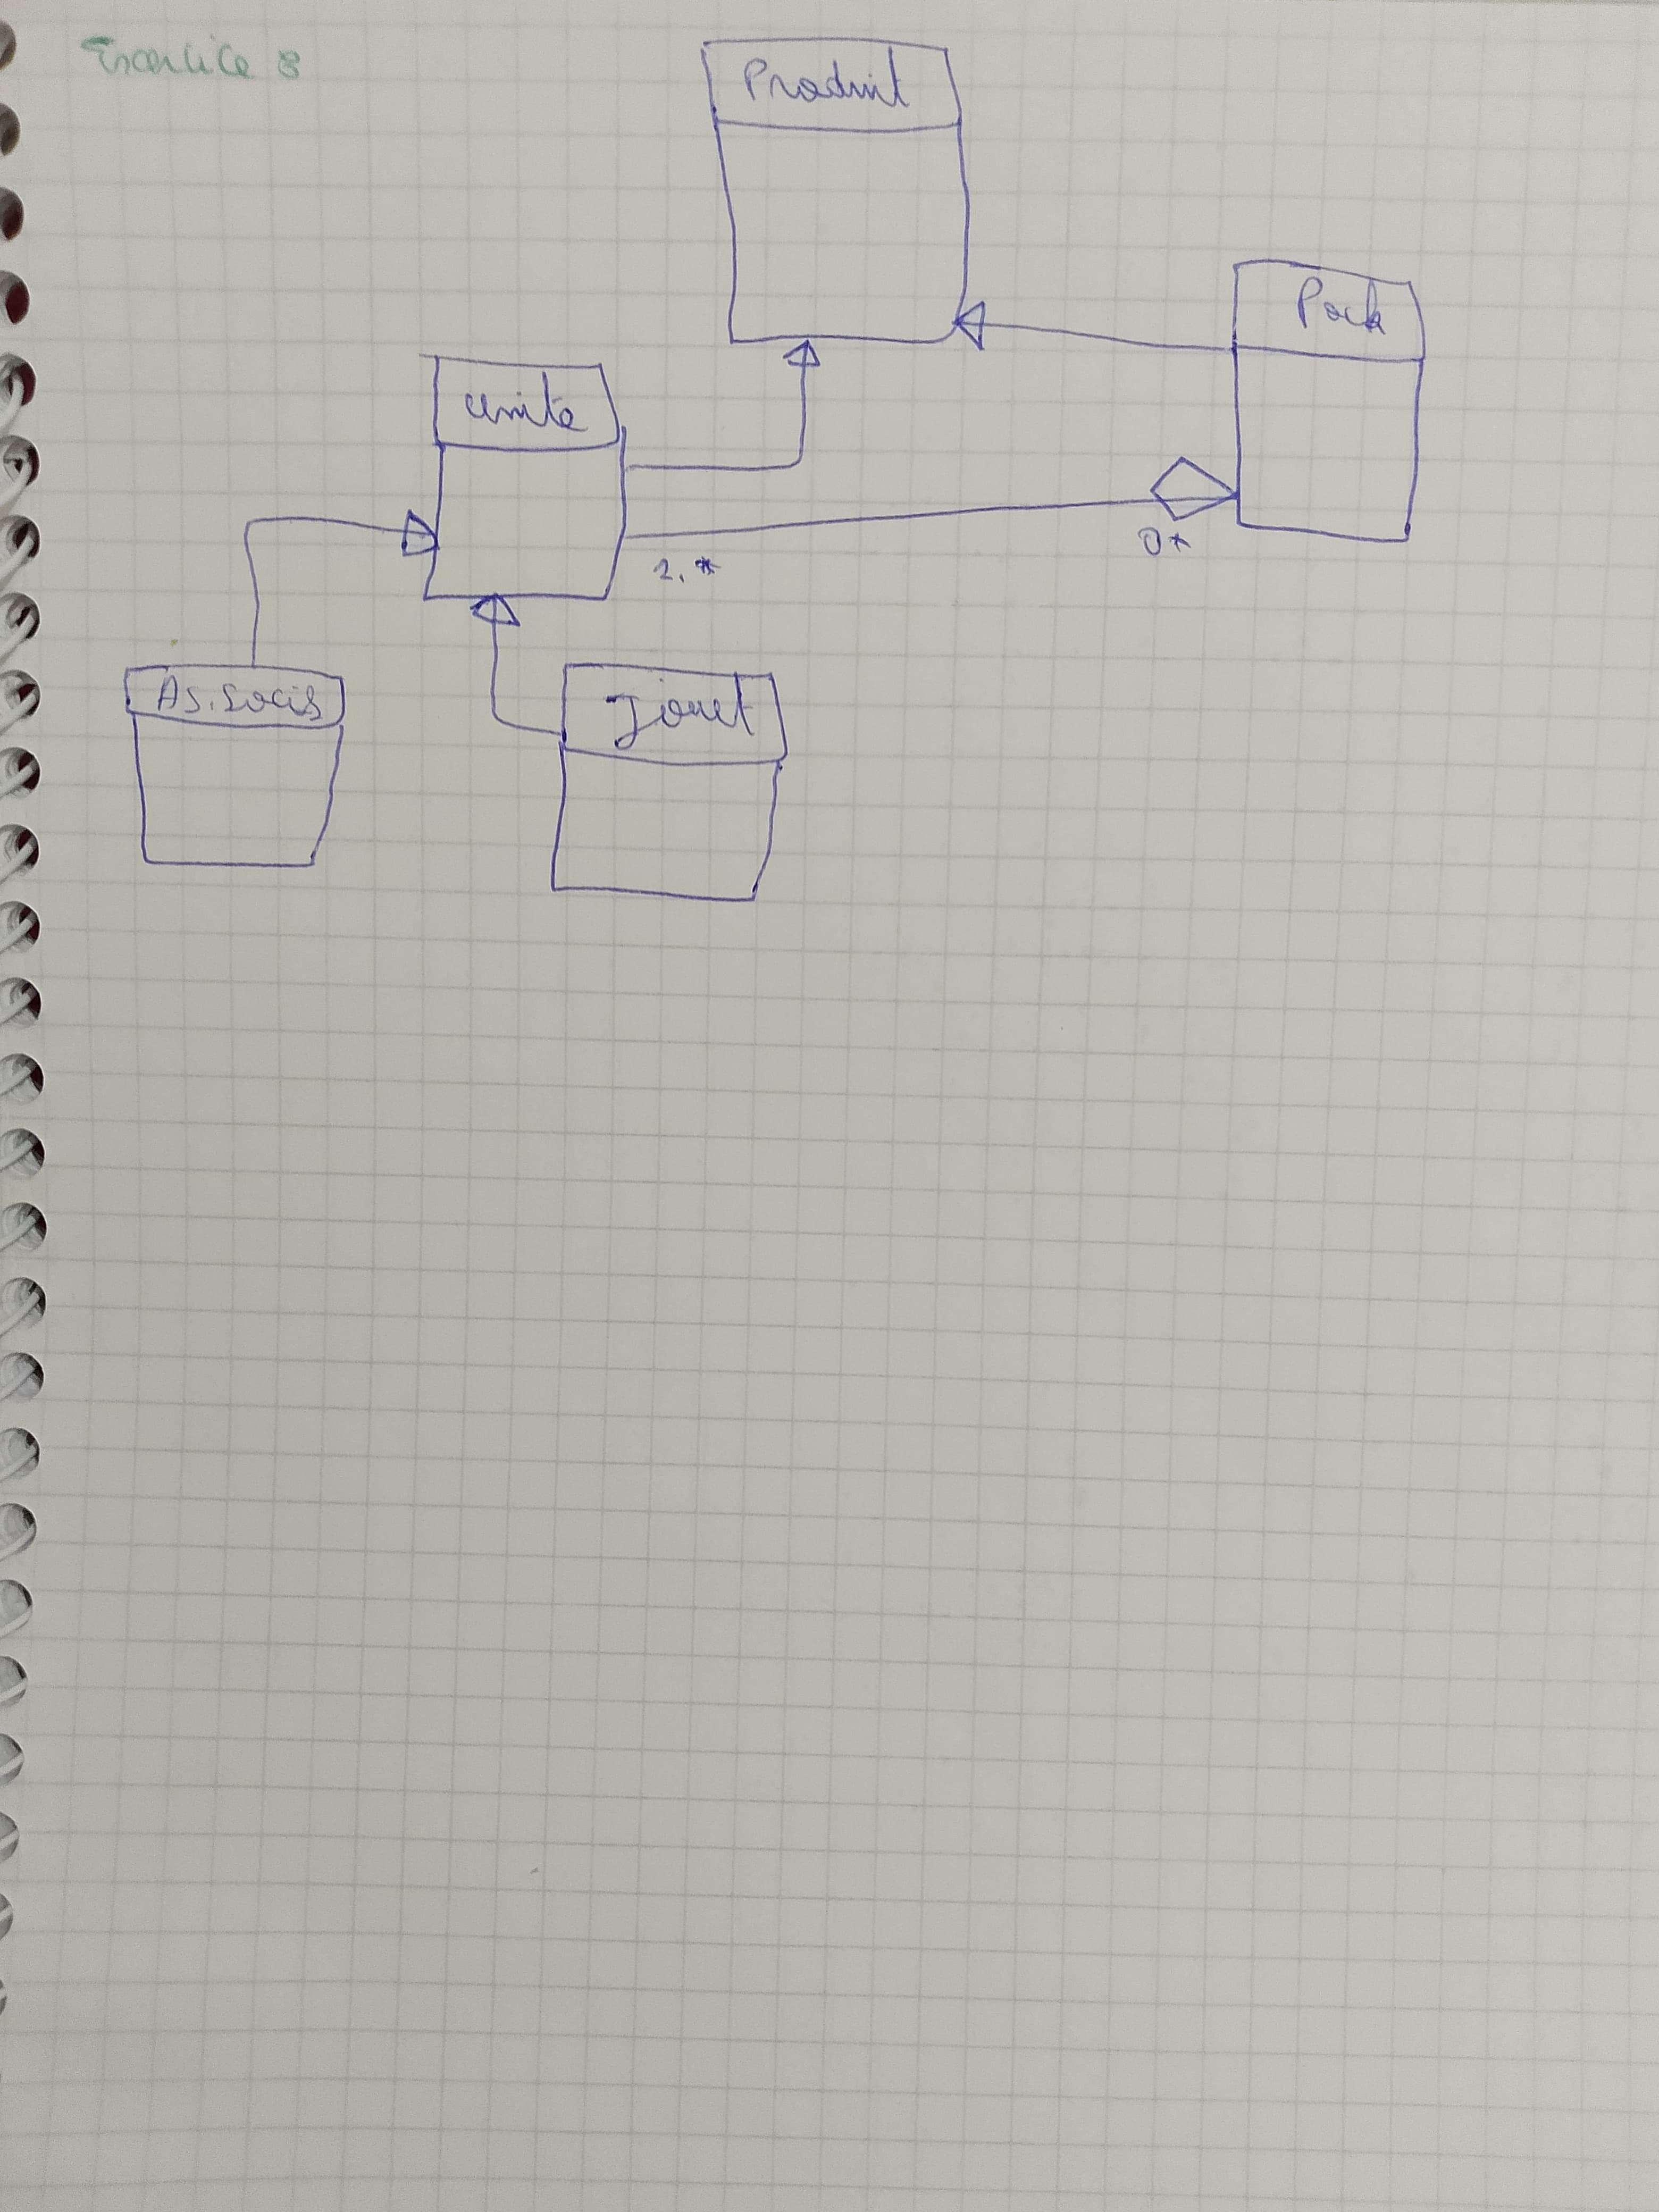 Exercice 8
Produit
Pack
unite
0*
2.*
As.Socis
Jouet